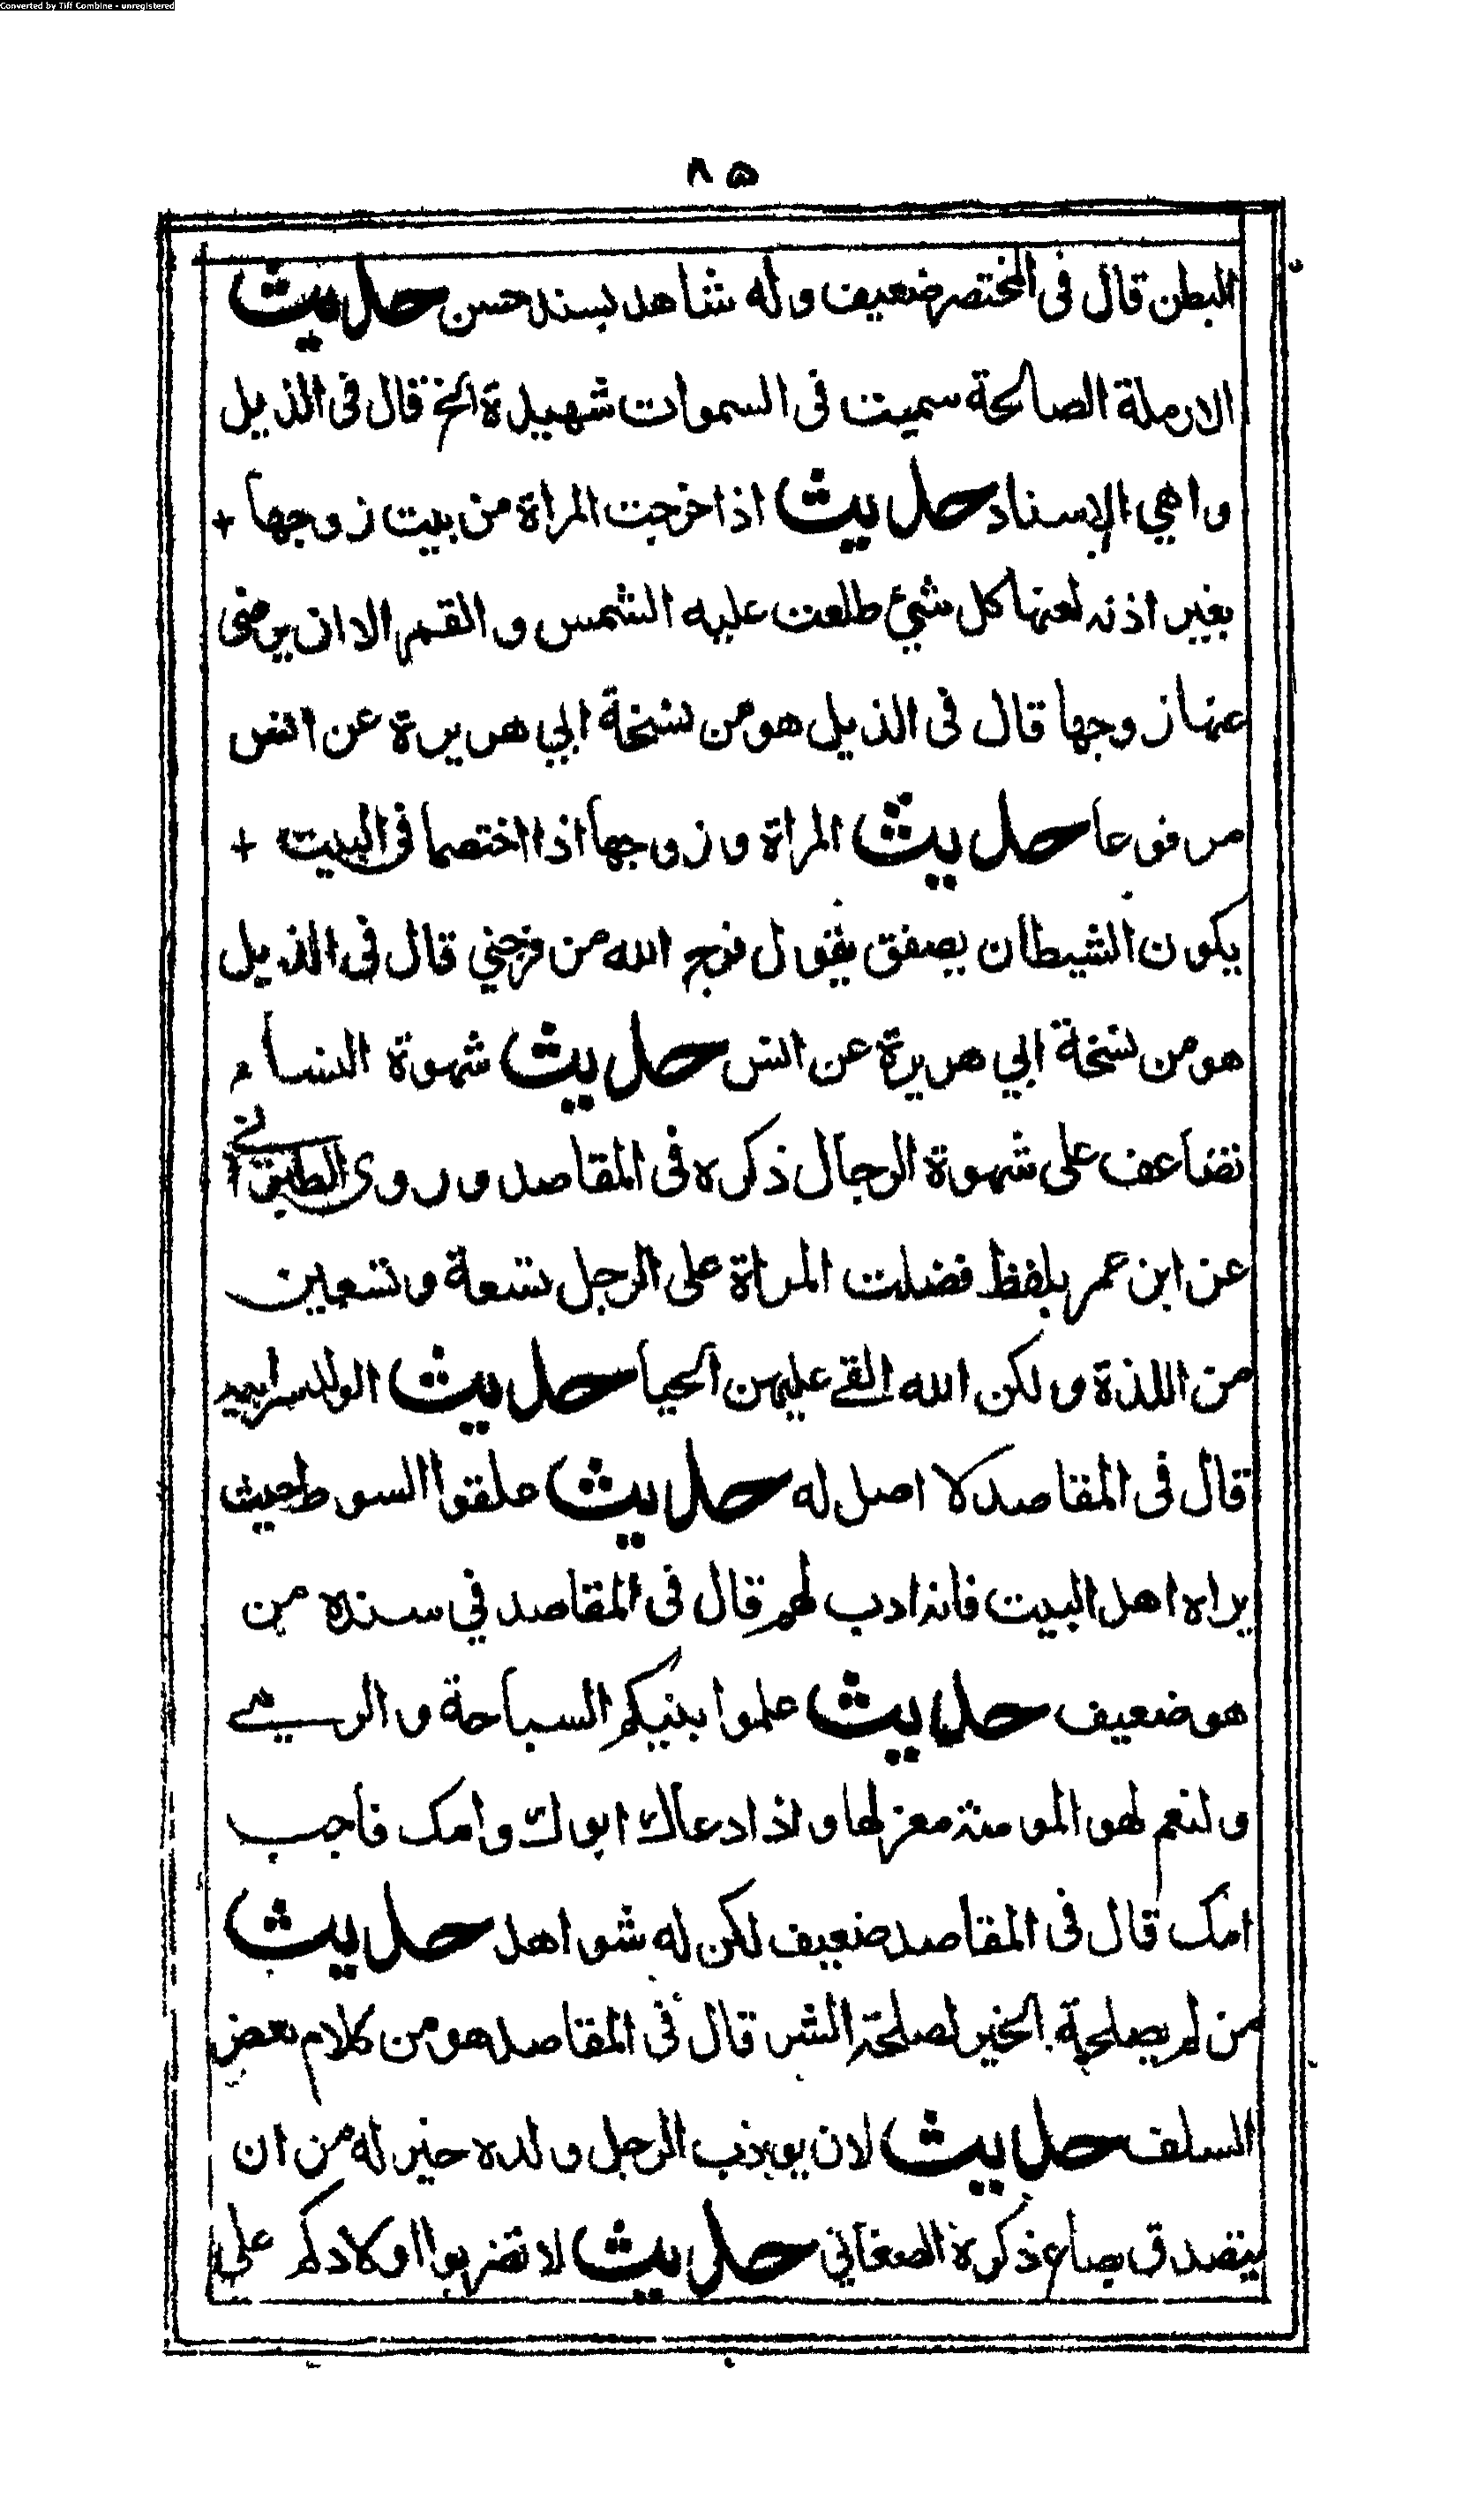 Converted by Tiff Combine - unregistered
۸۵
البطن قال فى المختصر ضعيف وله شاهد بسند حسن حديث
الارملة الصالحة سميت فى السموات شهيدة الخ قال فى الذيل
واهي الإسناد حديث اذا خرجت المراة من بيت زوجها +
بغير اذنه لعنها كل شئ طلعت عليه الشمس والقمر الا ان يرضى
عنها زوجها قال فى الذيل هو من نسخة ابي هريرة عن انس
مرفوعا حديث المراة وزوجها اذا اختصما فى البيت +
يكون الشيطان يصفق يقول فرح الله من فرحني قال فى الذيل
هو من نسخة ابي هريرة عن انس حديث شهوة النساء
تضاعف على شهوة الرجال ذكره فى المقاصد وروى الطبرانى
عن ابن عمر بلفظ فضلت المراة على الرجل بتسعة وتسعين
من اللذة ولكن الله القے عليهن الحيا حديث الولد سر ابيه
قال فى المقاصد لا اصل له حديث علقوا السوط حيث
يراه اهل البيت فانه ادب لهم قال فى المقاصد في سنده من
هو ضعيف حديث علموا بنيكم السباحة والرمے
ولنعم لهو المومنة مغزلها واذا دعاك ابوك وامك فاجب
امك قال فى المقاصد ضعيف لكن له شواهد حديث
من لم يصلحه الخير لصلحه الشر قال فى المقاصد هو من كلام بعض
السلف حديث لان يودب الرجل ولده خير له من ان
يتصدق بصاع ذكره الصغاني حديث لا تضربوا اولادكم على